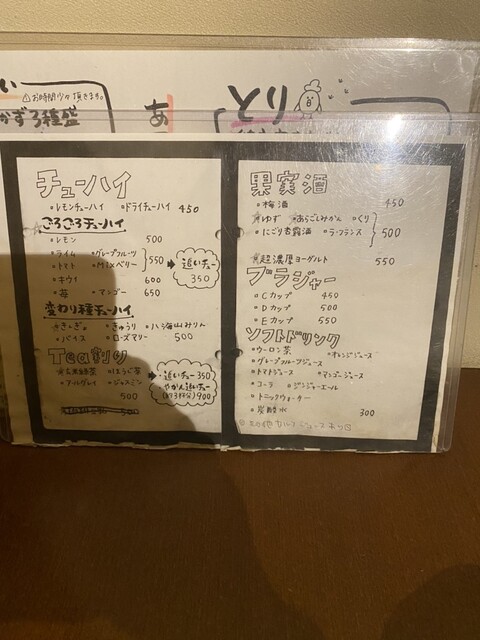 ⚠お時間少々頂きます。
かずろ種盛
あ
とり
チューハイ
・レモンチューハイ ・ドライチューハイ 450
ごろごろチューハイ
・レモン 500
・ライム ・グレープフルーツ
・トマト ・MIXベリー 550
・キウイ 600
・苺 ・マンゴー 650
追いチュー
350
変わり種チューハイ
・きゅうり ・八海山みりん
・バイス ・ローズマリー 500
Tea割り
・玄米緑茶 ・ほうじ茶
・アールグレイ ・ジャスミン
500
追いチュー350
やかん追いチュー
900
果実酒
・梅酒 450
・ゆず ・あらごしみかん ・くり
・にごり杏露酒 ・ラ・フランス 500
超濃厚ヨーグルト 550
ブラジャー
・Cカップ 450
・Dカップ 500
・Eカップ 550
ソフトドリンク
・ウーロン茶 ・オレンジジュース
・グレープフルーツジュース
・トマトジュース ・マンゴージュース
・コーラ ・ジンジャーエール
・トニックウォーター
・炭酸水 300